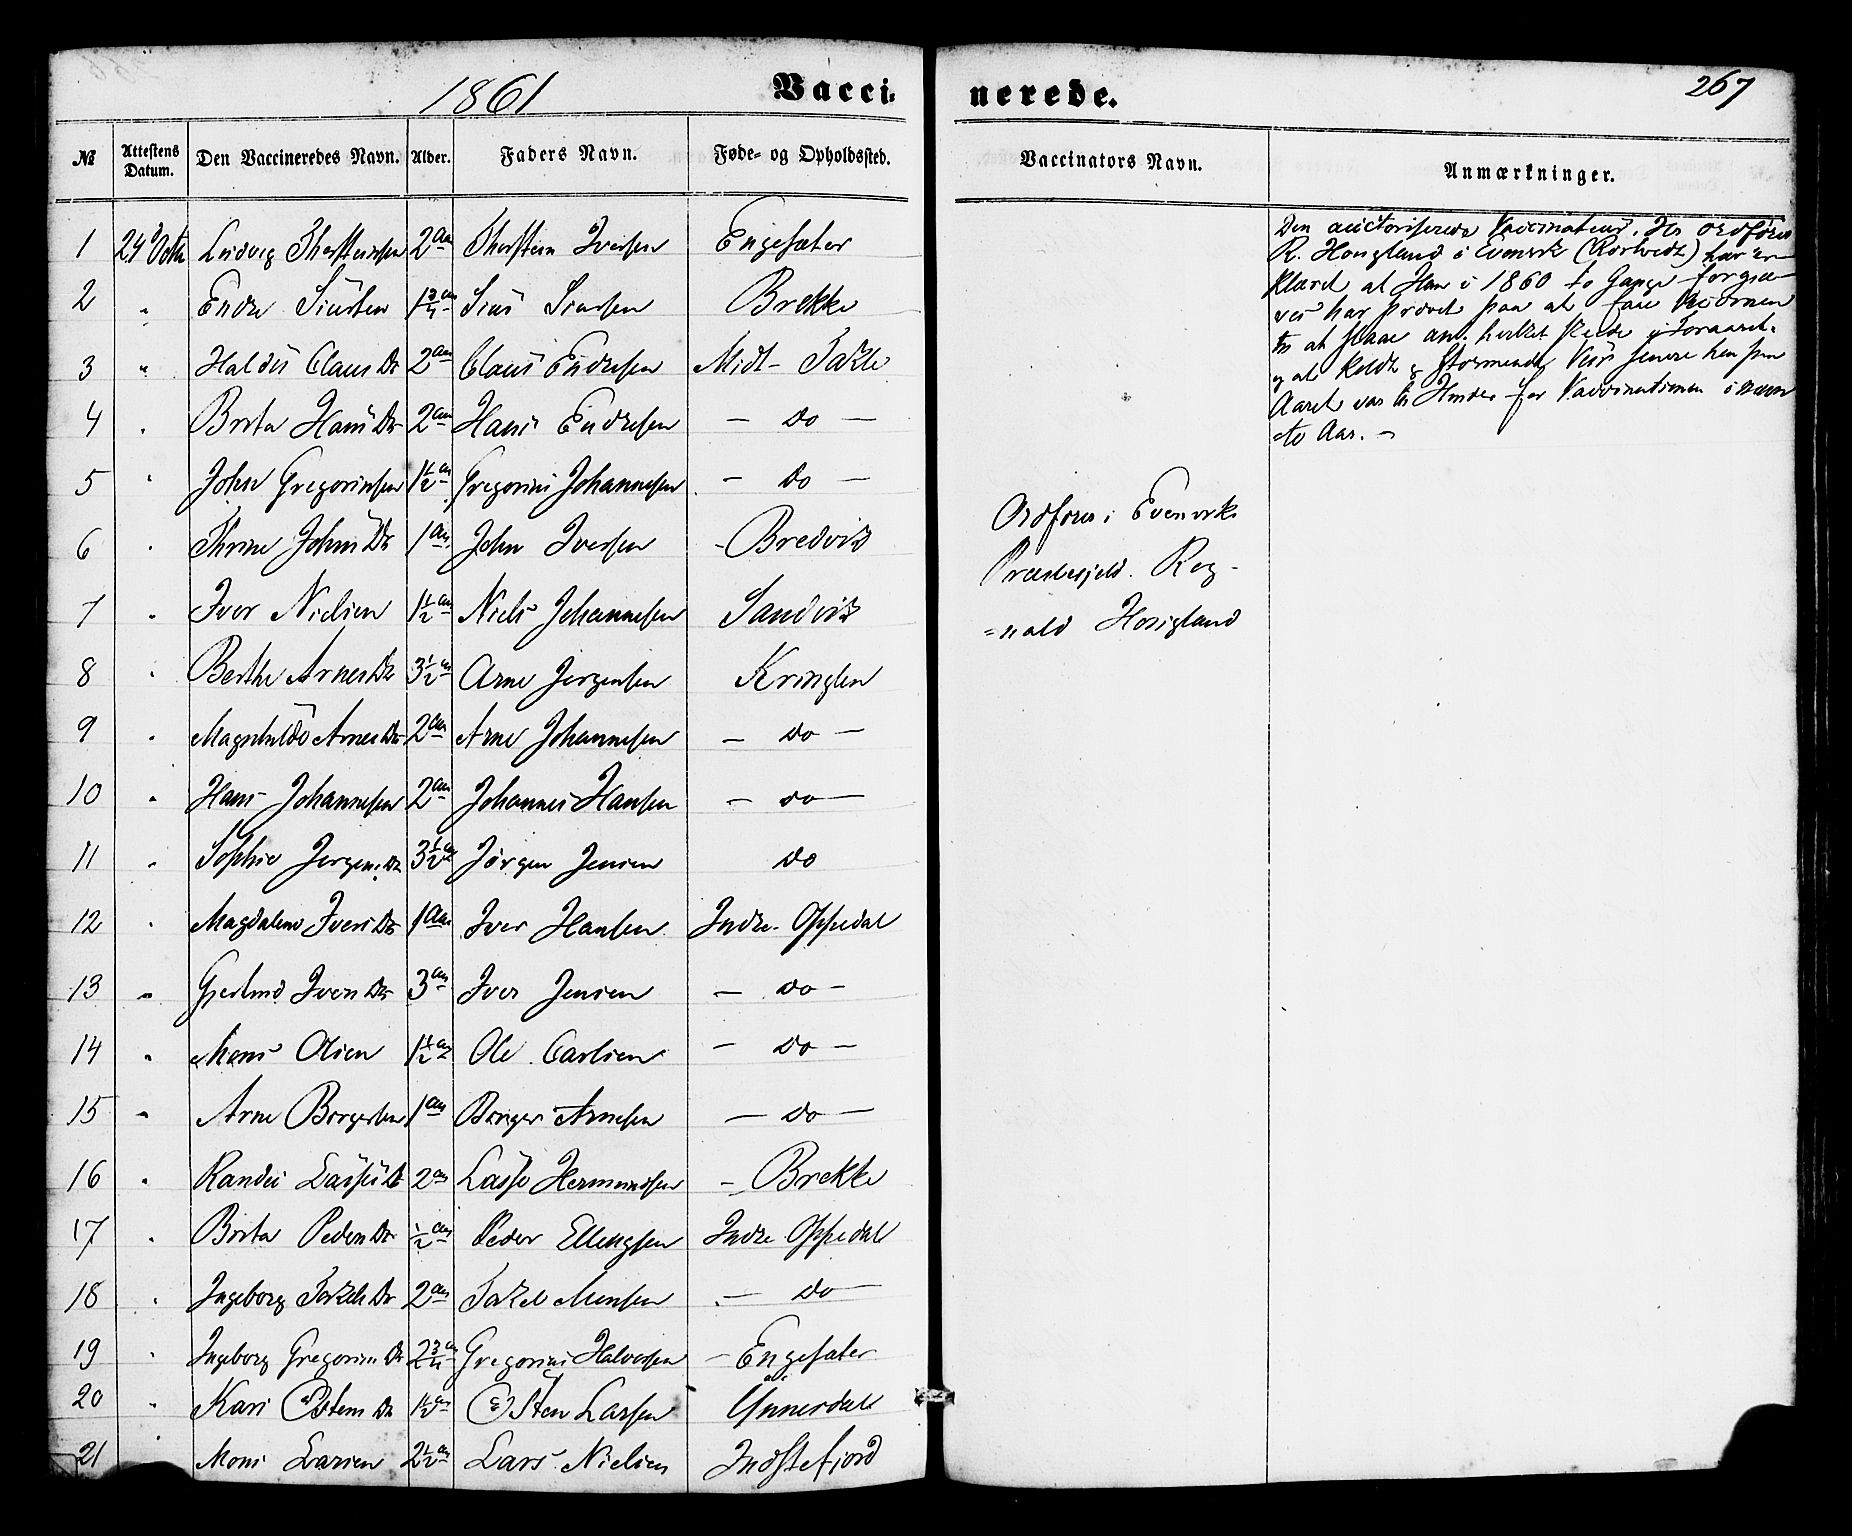 1861 Vacci- nerede. 267
№ Attestens Datum. Den Vaccineredes Navn. Alder. Faders Navn. Føde- og Opholdssted. Vaccinators Navn. Anmærkninger.
1 24 Octb Ludvig Thorsteinsen 2 Aar Thorstein Iversen Engesæter
2 " Endre Siursen 1 3/4 aar Siur Siursen Brekke
3 " Haldis Claus Dr 2 aar Claus Endresen Midt- Takle
4 " Brita Hans Dr 2 aar Hans Endresen — do —
5 " John Gregoriusen 1 1/2 aar Gregorius Johannesen — do —
6 " Thrine Johns Dr 1 aar John Iversen - Bredvik
7 " Iver Nielsen 1 1/2 aar Niels Johannesen Sandvik
8 " Berthe Arnes Dr 3 1/2 aar Arne Jørgensen Kringlen
9 " Magnhilde Arnes Dr 2 aar Arne Johannesen — do —
10 " Hans Johannesen 2 aar Johannes Hansen — do —
11 " Sophie Jørgens Dr 3 1/2 aar Jørgen Jensen do
12 " Magdalene Ivers Dr 1 Aar Iver Hansen Indre Oppedal
13 " Gjerlind Ivers Dr 3 aar Iver Jensen — do —
14 " Mons Olsen 1 1/2 aar Ole Carlsen — do —
15 " Arne Børgersen 1 aar Børger Arnesen — do —
16 " Randi Lasses Dr 2 aar Lasse Hermundsen - Brekke
17 " Brita Peders Dr 1/2 aar Peder Ellingsen Indre Oppedal
18 " Ingeborg Takels Dr 2 aar Takel Monsen — do —
19 " Ingeborg Gregorius Dr 2 3/4 aar Gregorius Halvorsen - Engesæter
20 " Kari Østens Dr 1 1/2 aar Østen Larsen Ynnesdal
21 " Mons Larsen 2 1/2 aar Lars Nielsen Indstefjord
Ordfører i Evenvik
Præstegjeld. Reg-
=nald Hougland
Den auctoriserede Vaccinateur, Hr Ordfører
R. Hougland i Evenvik (Rørtvedt) har er-
klæret at Han i 1860 to Gange forgjæ-
ves har prøvet paa at faae Vaccinen
til at slaae an, hvilket skede i Foraaret,
og at koldt og stormende Veir senere hen paa
Aaret var til Hinder for Vaccinationen i nævn
te Aar. —